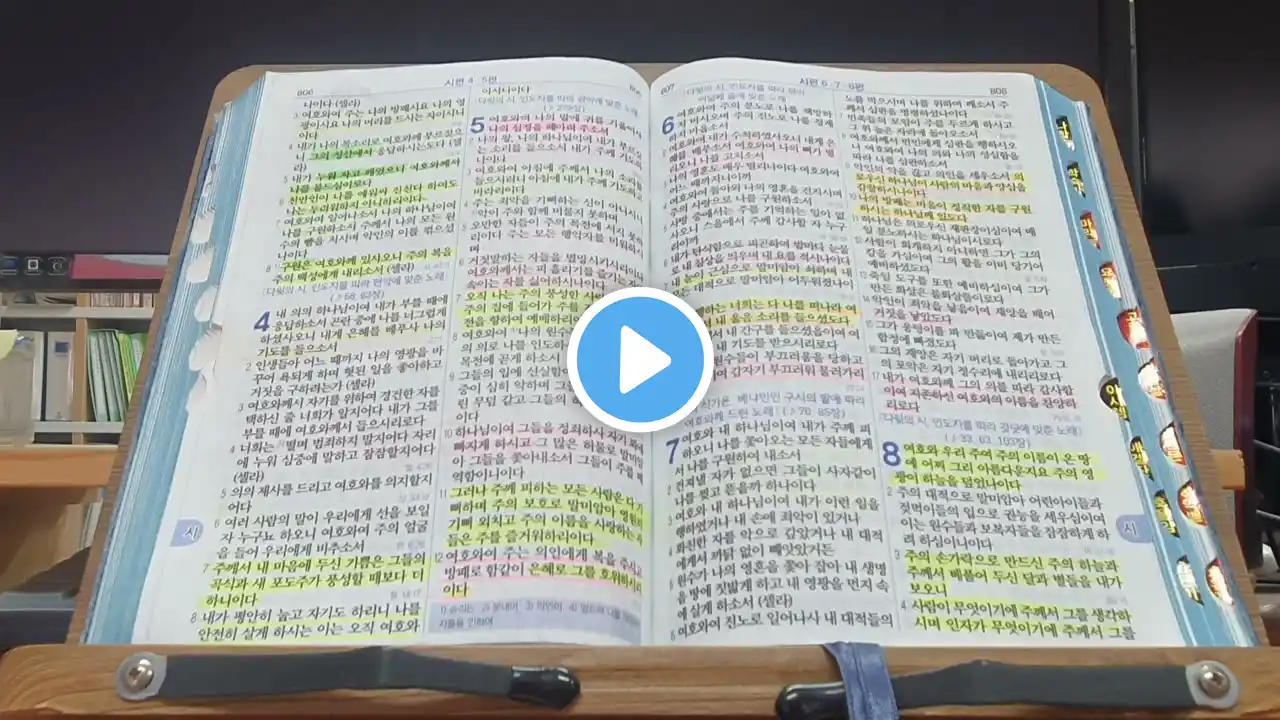 806
시편 4 5편
나이다 (셀라)
3 여호와여 주는 나의 방패시요 나의 영
광이시요 나의 머리를 드시는 자이시니
이다
4 내가 나의 목소리로 여호와께 부르짖으
니 그의 성산에서 응답하시는도다 (셀
라)
5 내가 누워 자고 깨었으니 여호와께서
나를 붙드심이로다
6 천만인이 나를 에워싸 진친다 하여도
나는 두려워하지 아니하리이다
7 여호와여 일어나소서 나의 하나님이여
나를 구원하소서 주께서 나의 모든 원
수의 뺨을 치시며 악인의 이를 꺾으셨
나이다
8 구원은 여호와께 있사오니 주의 복을
주의 백성에게 내리소서 (셀라)
(다윗의 시, 인도자를 따라 현악에 맞춘 노래)
4 내 의의 하나님이여 내가 부를 때에
응답하소서 곤란 중에 나를 너그럽게
하셨사오니 내게 은혜를 베푸사 나의
기도를 들으소서
2 인생들아 어느 때까지 나의 영광을 바
꾸어 욕되게 하며 헛된 일을 좋아하고
거짓을 구하려는가 (셀라)
3 여호와께서 자기를 위하여 경건한 자를
택하신 줄 너희가 알지어다 내가 그를
부를 때에 여호와께서 들으시리로다
4 너희는 떨며 범죄하지 말지어다 자리
에 누워 심중에 말하고 잠잠할지어다
(셀라)
5 의의 제사를 드리고 여호와를 의지할지
어다
6 여러 사람의 말이 우리에게 선을 보일
자 누구뇨 하오니 여호와여 주의 얼굴
을 들어 우리에게 비추소서
7 주께서 내 마음에 두신 기쁨은 그들의
곡식과 새 포도주가 풍성할 때보다 더
하니이다
8 내가 평안히 눕고 자기도 하리니 나를
안전히 살게 하시는 이는 오직 여호와
이시니이다
(다윗의 시, 인도자를 따라 관악에 맞춘 노래)
5 여호와여 나의 말에 귀를 기울이사
나의 심정을 헤아려 주소서
2 나의 왕, 나의 하나님이여 내가 부르짖
는 소리를 들으소서 내가 주께 기도하
나이다
3 여호와여 아침에 주께서 나의 소리를
들으시리니 아침에 내가 주께 기도하고
바라리이다
4 주는 죄악을 기뻐하는 신이 아니시니
악이 주와 함께 머물지 못하며
5 오만한 자들이 주의 목전에 서지 못하
리이다 주는 모든 행악자를 미워하시
며
6 거짓말하는 자들을 멸망시키시리이다
여호와께서는 피 흘리기를 즐기는 자와
속이는 자를 싫어하시나이다
7 오직 나는 주의 풍성한 사랑을
주의 집에 들어가 주를
전을 향하여 예배하리이다
8 여호와여 나의 원수들
여 주의 의로 나를 인도하
목전에 곧게 하소서
9 그들의 입에 신실함
중이 심히 악하며 그
린 무덤 같고 그들의
이다
10 하나님이여 그들을 정죄하사 자기 꾀에
빠지게 하시고 그 많은 허물로 말미암
아 그들을 쫓아내소서 그들이 주를 배
역함이니이다
11 그러나 주께 피하는 모든 사람은 다 기
뻐하며 주의 보호로 말미암아 영원히
기뻐 외치고 주의 이름을 사랑하는 자
들은 주를 즐거워하리이다
12 여호와여 주는 의인에게 복을 주시고
방패로 함같이 은혜로 그를 호위하시리
이다
807
시편 6 7 8편
808
6 여호와여 주의 분노로 나를 책망하
지 마시오며 주의 진노로 나를 징계
하지 마옵소서
2 여호와여 내가 수척하였사오니 내게 은
혜를 베푸소서 여호와여 나의 뼈가 떨
리오니 나를 고치소서
3 나의 영혼도 매우 떨리나이다 여호와여
어느 때까지니이까
4 여호와여 돌아와 나의 영혼을 건지시며
주의 사랑으로 나를 구원하소서
5 사망 중에서는 주를 기억하는 일이 없
사오니 스올에서 주께 감사할 자 누구
리이까
6 내가 탄식함으로 피곤하여 밤마다 눈물
로 내 침상을 띄우며 내 요를 적시나이다
7 내 눈이 근심으로 말미암아 쇠하며 내
모든 대적으로 말미암아 어두워졌나이
다
하는 너희는 다 나를 떠나라 여
내 울음 소리를 들으셨도다
내 간구를 들으셨음이여 여
내 기도를 받으시리로다
원수들이 부끄러움을 당하고
갑자기 부끄러워 물러가리
로다
베냐민인 구시의 말에 따라
여호와께 드린 노래
7 여호와 내 하나님이여 내가 주께 피
하오니 나를 쫓아오는 모든 자들에게
서 나를 구원하여 내소서
2 건져낼 자가 없으면 그들이 사자같이
나를 찢고 뜯을까 하나이다
3 여호와 내 하나님이여 내가 이런 일을
행하였거나 내 손에 죄악이 있거나
4 화친한 자를 악으로 갚았거나 내 대적
에게서 까닭 없이 빼앗았거든
5 원수가 나의 영혼을 쫓아 잡아 내 생명
을 땅에 짓밟게 하고 내 영광을 먼지 속
에 살게 하소서 (셀라)
6 여호와여 진노로 일어나사 내 대적들의
노를 막으시며 나를 위하여 깨소서 주
께서 심판을 명령하셨나이다
7 민족들의 모임이 주를 두르게 하시고
그 위 높은 자리에 돌아오소서
8 여호와께서 만민에게 심판을 행하시오
니 여호와여 나의 의와 나의 성실함을
따라 나를 심판하소서
9 악인의 악을 끊고 의인을 세우소서 의
로우신 하나님이 사람의 마음과 양심을
감찰하시나이다
10 나의 방패는 마음이 정직한 자를 구원
하시는 하나님께 있도다
11 하나님은 의로우신 재판장이심이여 매
일 분노하시는 하나님이시로다
12 사람이 회개하지 아니하면 그가 그의
칼을 가심이여 그의 활을 이미 당기어
예비하셨도다
13 죽일 도구를 또한 예비하심이여 그가
만든 화살은 불화살들이로다
14 악인이 죄악을 낳음이여 재앙을 배어
거짓을 낳았도다
15 그가 웅덩이를 파 만듦이여 제가 만든
함정에 빠졌도다
16 그의 재앙은 자기 머리로 돌아가고 그
의 포악은 자기 정수리에 내리리로다
17 내가 여호와께 그의 의를 따라 감사함
이여 지존하신 여호와의 이름을 찬양하
리로다
(다윗의 시, 인도자를 따라 깃딧에 맞춘 노래)
8 여호와 우리 주여 주의 이름이 온 땅
에 어찌 그리 아름다운지요 주의 영
광이 하늘을 덮었나이다
2 주의 대적으로 말미암아 어린아이들과
젖먹이들의 입으로 권능을 세우심이여
이는 원수들과 보복자들을 잠잠하게 하
려 하심이니이다
3 주의 손가락으로 만드신 주의 하늘과
주께서 베풀어 두신 달과 별들을 내가
보오니
4 사람이 무엇이기에 주께서 그를 생각하
시며 인자가 무엇이기에 주께서 그를
시
시